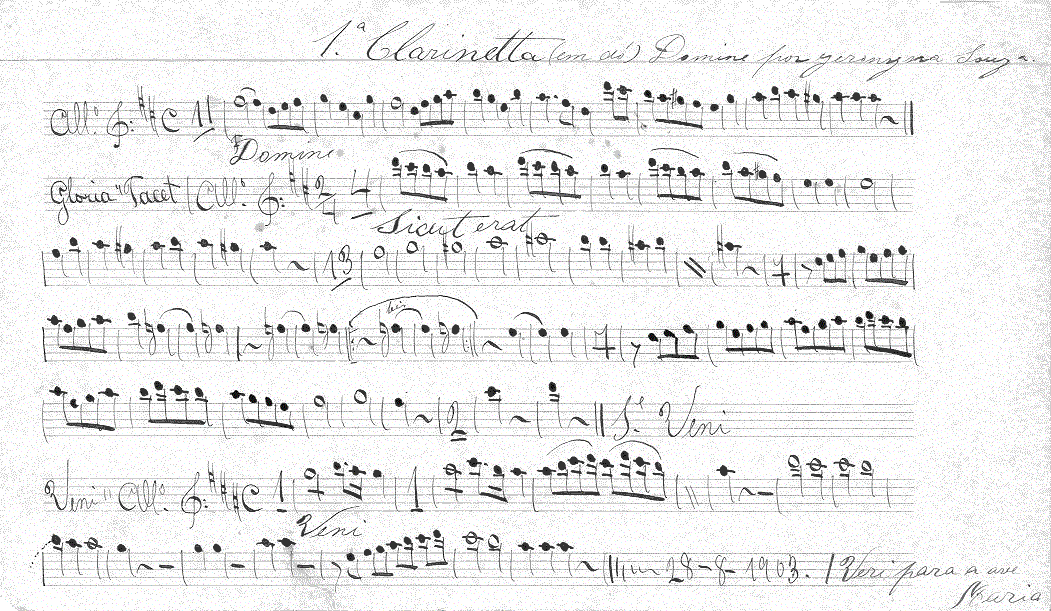 1.ª Clarinetta (em dó) Domine por Jeronyma Souza.
All.º C 11
Domine
Gloria "Tacet All.º 2/4 4
Sicut erat
13
bis
2 S.e Veni
Veni" All.º C 1 1
Veni
28-8-1903. Veri para a ave
Maria